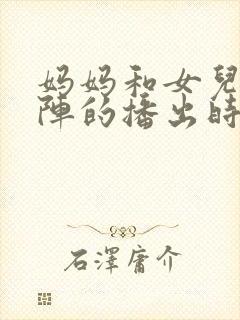 妈妈和女兒
陣的播出時
石澤庸介